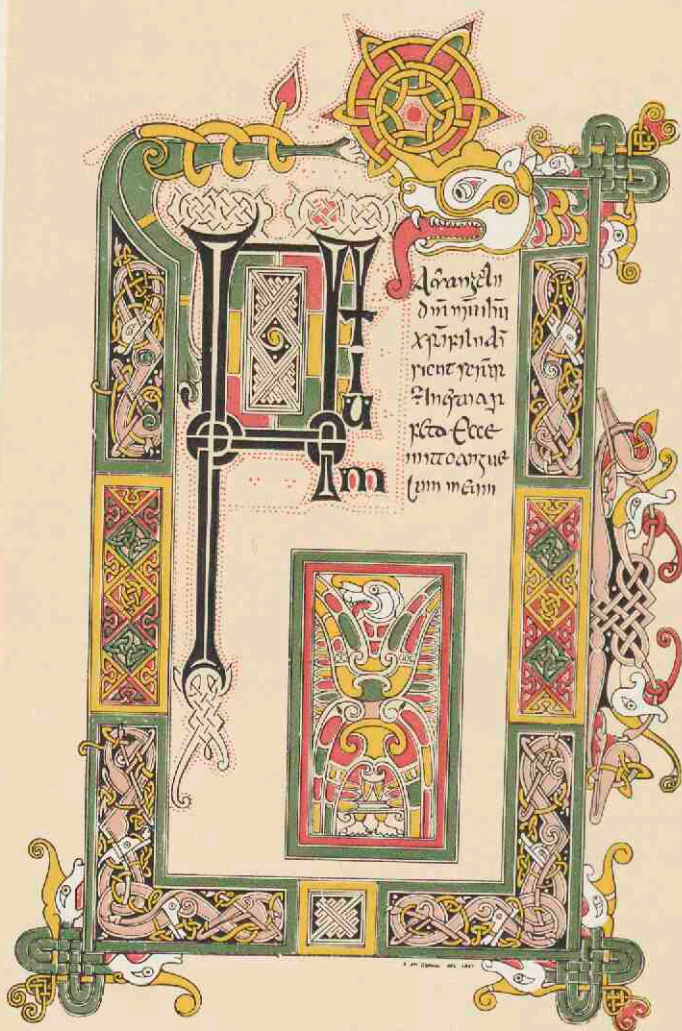 Initium
Aevangelii
dn̄i nr̄i ih̄u
xp̄i fili dī
sicut
In
feta Ecce
mitto angue
lum meum